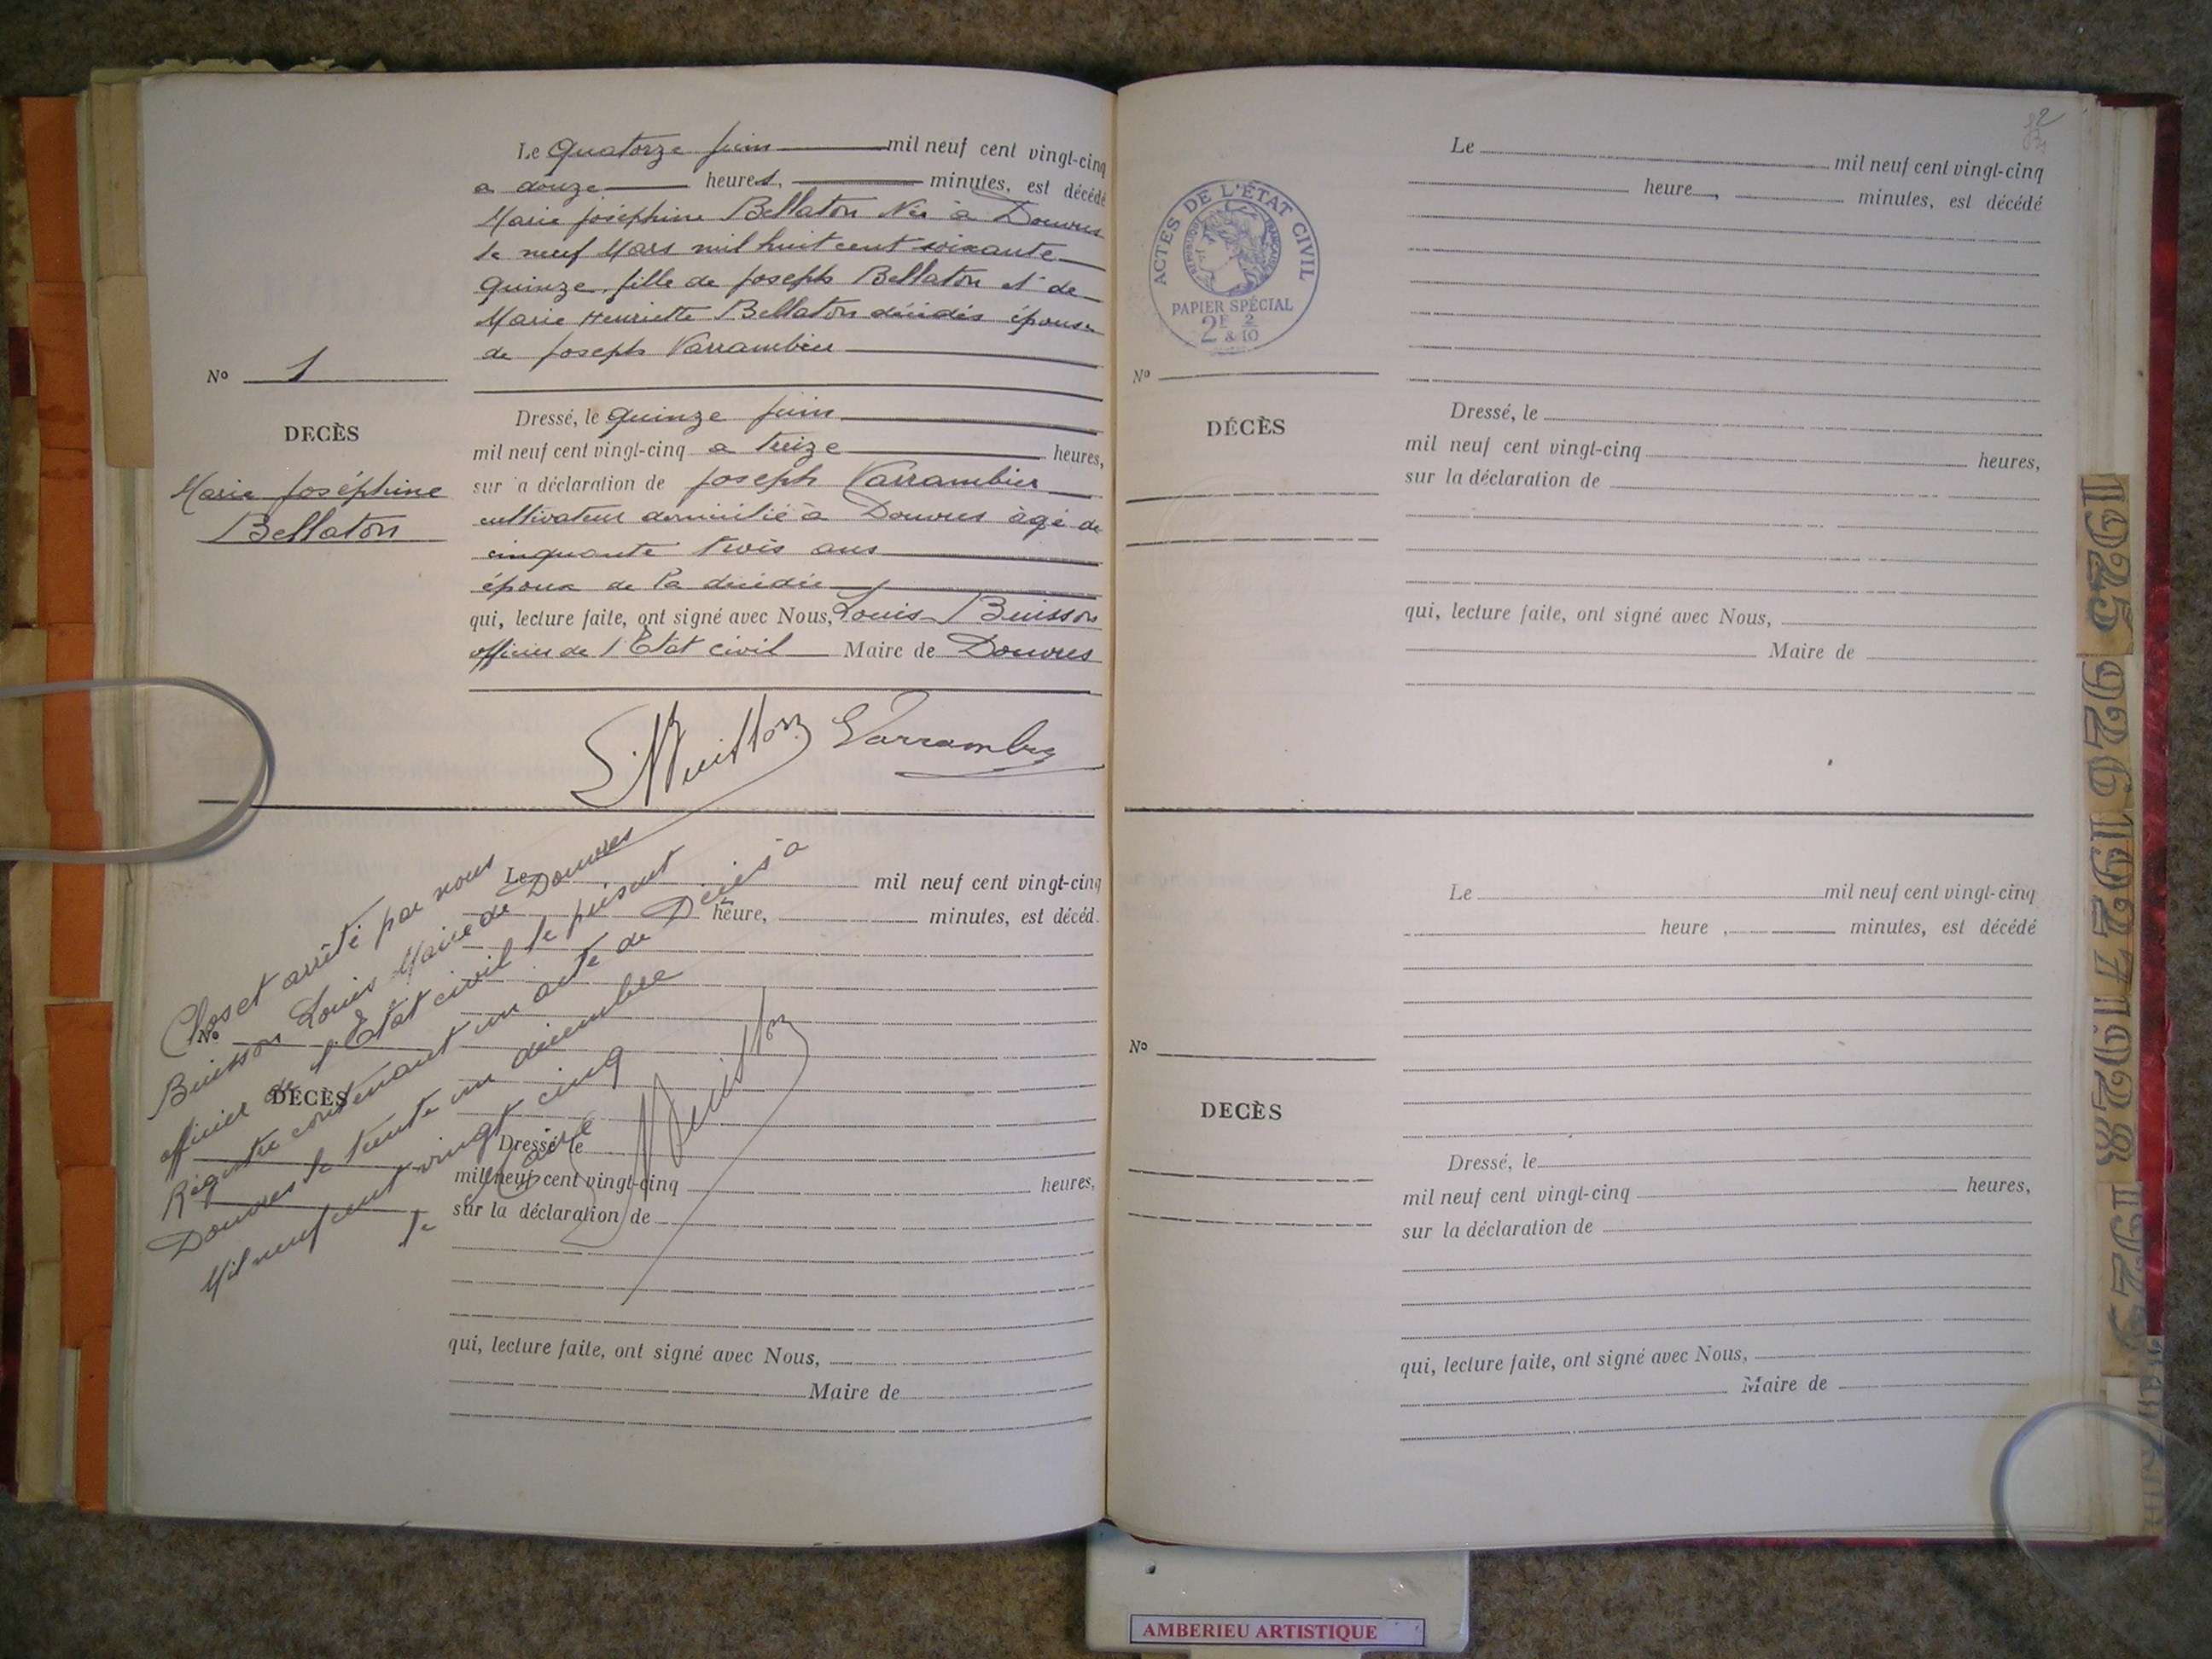 Le Quatorze juin mil neuf cent vingt-cinq
a douze heures, minutes, est décédé
Marie Joséphine Bellaton Née à Douvres
le neuf Mars mil huit cent soixante
Quinze, fille de Joseph Bellaton et de
Marie Henriette Bellaton décédés épouse
de Joseph Varrambier
No 1
DECÈS
Marie Joséphine
Bellaton
Dressé, le quinze juin
mil neuf cent vingt-cinq a treize heures,
sur a déclaration de Joseph Varrambier
cultivateur domicilié à Douvres âgé de
cinquante trois ans
époux de la décédée
qui, lecture faite, ont signé avec Nous, Louis Buisson
officier de l'Etat civil Maire de Douvres
Varrambier
Le mil neuf cent vingt-cinq
heure, minutes, est décéd.
No
DECÈS
Dressé le
mil neuf cent vingt-cinq heures,
sur la déclaration de
qui, lecture faite, ont signé avec Nous,
Maire de
Clos et arrêté par nous
Buisson Louis Maire de Douvres
officier de l'Etat civil le présent
Régistre contenant un acte de Décès à
Douvres le trente un décembre
Mil neuf cent vingt cinq
le Maire
ACTES DE L'ÉTAT CIVIL
RÉPUBLIQUE FRANÇAISE
PAPIER SPÉCIAL
2F 2
& 10
Le mil neuf cent vingt-cinq
heure, minutes, est décédé
No
DÉCÈS
Dressé, le
mil neuf cent vingt-cinq heures,
sur la déclaration de
qui, lecture faite, ont signé avec Nous,
Maire de
Le mil neuf cent vingt-cinq
heure, minutes, est décédé
No
DECÈS
Dressé, le
mil neuf cent vingt-cinq heures,
sur la déclaration de
qui, lecture faite, ont signé avec Nous,
Maire de
1925
1926
1927
1928
1929
AMBERIEU ARTISTIQUE